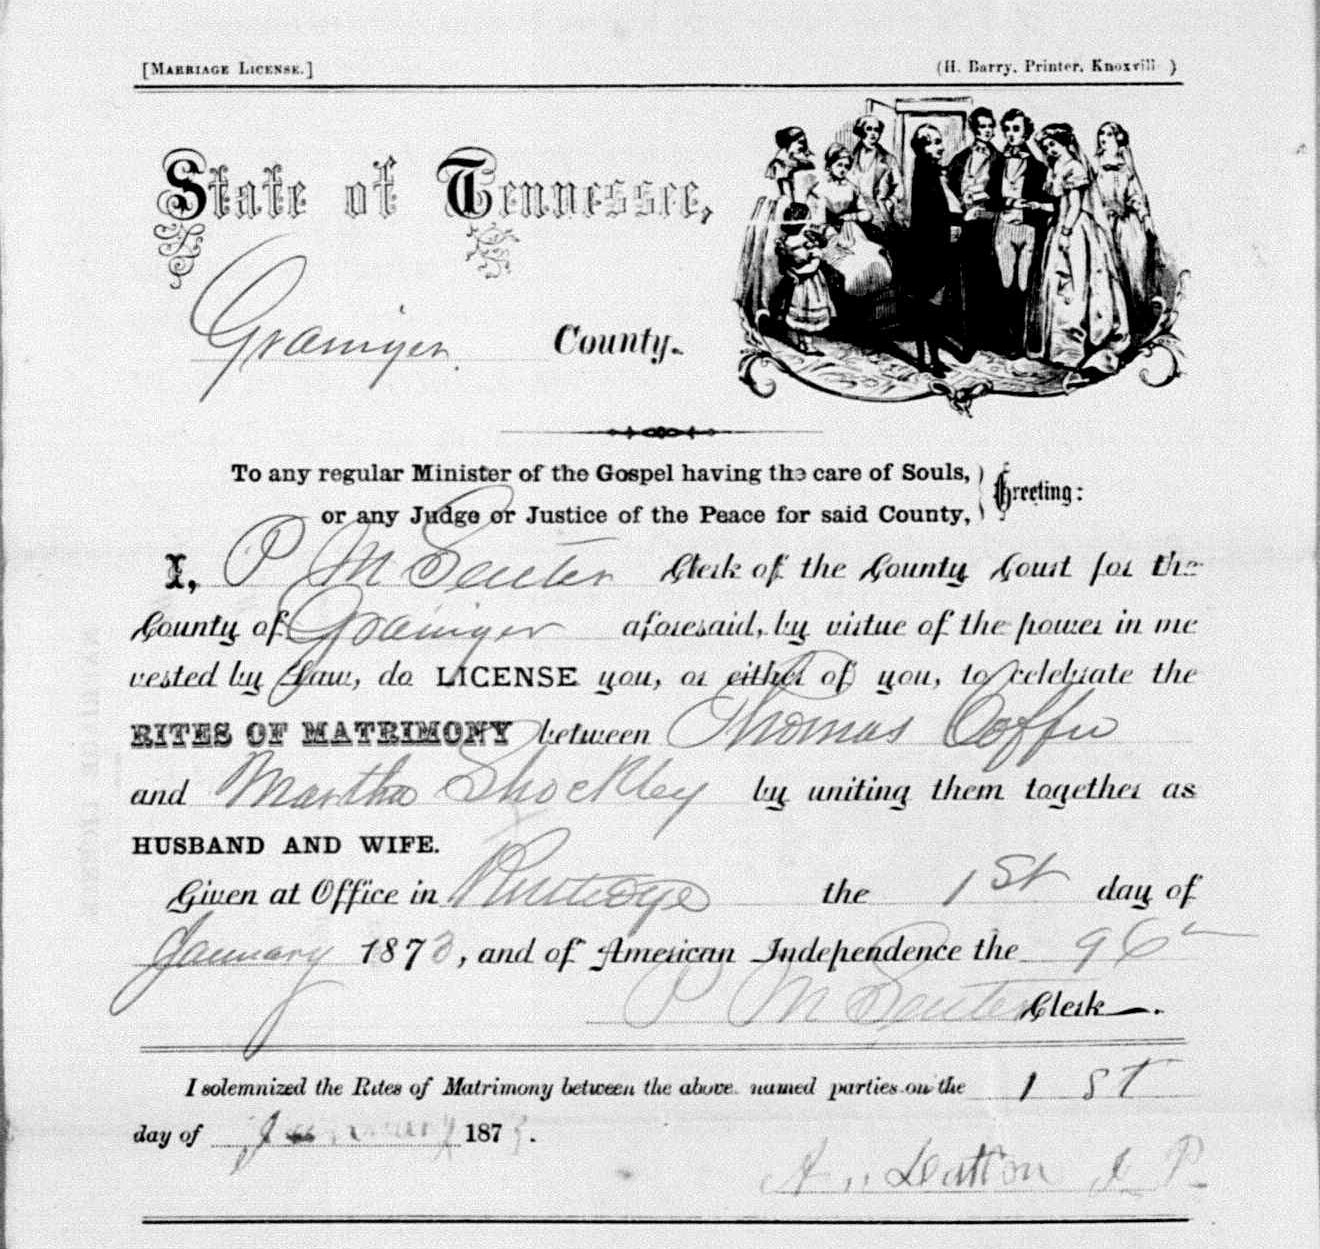 [Marriage License.] (H. Barry, Printer, Knoxvill )
State of Tennessee,
Grainger County.
To any regular Minister of the Gospel having the care of Souls,
or any Judge or Justice of the Peace for said County, Greeting:
I, P M Senter Clerk of the County Court for the
County of Grainger aforesaid, by virtue of the power in me
vested by Law, do LICENSE you, or either of you, to celebrate the
RITES OF MATRIMONY between Thomas
and Martha Shockley by uniting them together as
HUSBAND AND WIFE.
Given at Office in Rutledge the 1st day of
January 1873, and of American Independence the 96
P M Senter Clerk.
I solemnized the Rites of Matrimony between the above named parties on the 1 st
day of January 1873.
J P